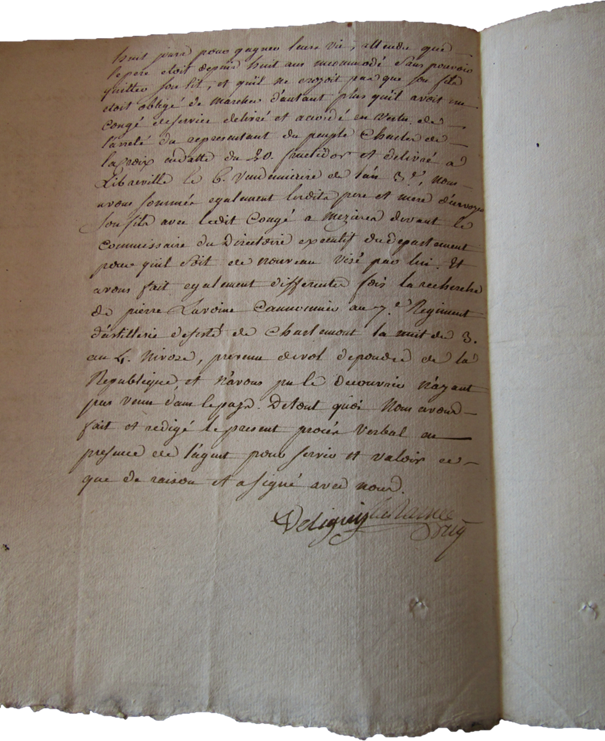 huit jours pour gagner leure vie, attendu que
le pere etoit depuis huit ans incommodé sans pouvoir
quitter son lit, et qu'il ne croyoit pas que son fils
etoit obligé de marcher d'autant plus qu'il avoit un
congé de service delivré et accordé en vertu de
l'areté du representant du peuple Charles de
la croix en datte du 20. messidor et delivré a
Libreville le 6. Vendemiaire de l'an 3.e, nous
avons sommée egalement lesdits pere et mere d'envoyer
son fils avec ledit congé a mezieres devant le
commissaire du Directoire executif du departement
pour qu'il soit de nouveau visé par lui. Et
avons fait egalement differentes fois la recherche
de pierre Lavoine Cannonnier au 7.e Regiment
d'artillerie deserté de Charlemont la nuit du 3.
au 4. Nivose, prevenu de vol de poudre de la
Republique, et n'avons pu le decouvrir n'ayant
pas venu dans le pays. De tout quoi nous avons
fait et redigé le present procès verbal en
presence de l'agent pour servir et valoir ce
que de raison et a signé avec nous.
Deligny